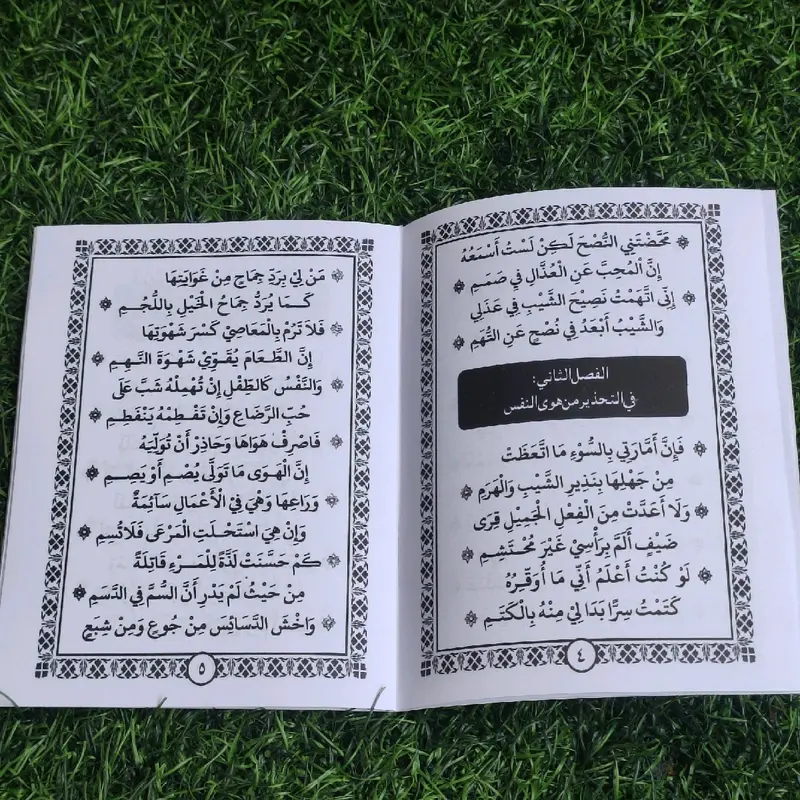 مَحَّضْتَنِي النُّصْحَ لَكِنْ لَسْتُ أَسْمَعُهُ
إِنَّ الْمُحِبَّ عَنِ الْعُذَّالِ فِي صَمَمِ
إِنِّى اتَّهَمْتُ نَصِيحَ الشَّيْبِ فِي عَذَلِي
وَالشَّيْبُ أَبْعَدُ فِي نُصْحٍ عَنِ التُّهَمِ
الفصل الثاني:
في التحذير من هوى النفس
فَإِنَّ أَمَّارَتِي بِالسُّوْءِ مَا اتَّعَظَتْ
مِنْ جَهْلِهَا بِنَذِيرِ الشَّيْبِ وَالْهَرَمِ
وَلَا أَعَدَّتْ مِنَ الْفِعْلِ الْجَمِيلِ قِرَى
ضَيْفٍ أَلَمَّ بِرَأْسِيْ غَيْرَ مُحْتَشِمِ
لَوْ كُنْتُ أَعْلَمُ أَنِّي مَا أُوَقِّرُهُ
كَتَمْتُ سِرًّا بَدَا لِيْ مِنْهُ بِالْكَتَمِ
٤
مَنْ لِيْ بِرَدِّ جِمَاحٍ مِنْ غَوَايَتِهَا
كَمَا يُرَدُّ جِمَاحُ الْخَيْلِ بِاللُّجُمِ
فَلَا تَرُمْ بِالْمَعَاصِيْ كَسْرَ شَهْوَتِهَا
إِنَّ الطَّعَامَ يُقَوِّيْ شَهْوَةَ النَّهِمِ
وَالنَّفْسُ كَالطِّفْلِ إِنْ تُهْمِلْهُ شَبَّ عَلَى
حُبِّ الرَّضَاعِ وَإِنْ تَفْطِمْهُ يَنْفَطِمِ
فَاصْرِفْ هَوَاهَا وَحَاذِرْ أَنْ تُوَلِّيَهُ
إِنَّ الْهَوَى مَا تَوَلَّى يُصْمِ أَوْ يَصِمِ
وَرَاعِهَا وَهْيَ فِيْ الْأَعْمَالِ سَآئِمَةٌ
وَإِنْ هِيَ اسْتَحْلَتِ الْمَرْعَى فَلَا تُسِمِ
كَمْ حَسَّنَتْ لَذَّةً لِلْمَرْءِ قَاتِلَةً
مِنْ حَيْثُ لَمْ يَدْرِ أَنَّ السُّمَّ فِي الدَّسَمِ
وَاخْشَ الدَّسَائِسَ مِنْ جُوعٍ وَمِنْ شِبَعٍ
٥